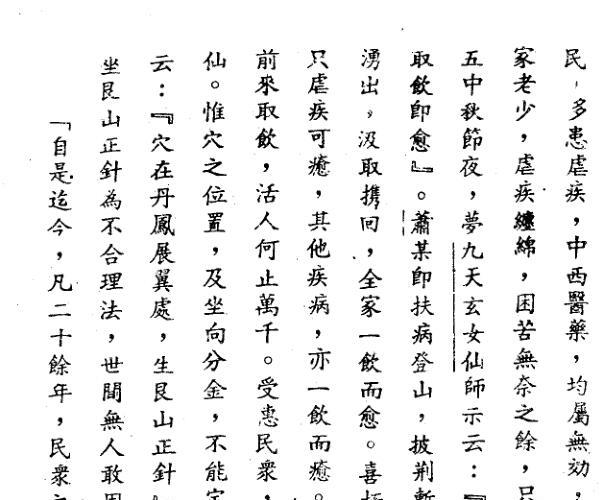 民，多患虐疾，中西醫藥，均屬無効，
家老少，虐疾纏綿，困苦無奈之餘，只
五中秋節夜，夢九天玄女仙師示云：『
取飲卽愈』。蕭某卽扶病登山，披荊斬
湧出，汲取携回，全家一飲而愈。喜極
只虐疾可癒，其他疾病，亦一飲而癒。
前來取飲，活人何止萬千。受惠民衆，
仙。惟穴之位置，及坐向分金，不能
云：『穴在丹鳳展翼處，生艮山正針
坐艮山正針為不合理法，世間無人敢
「自是迄今，凡二十餘年，民衆